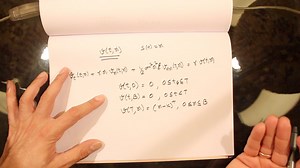 v(t,x) S(t) = x
v_t(t,x) + r x v_x(t,x) + ½ σ² x² v_xx(t,x) = r v(t,x)
v(t,0) = 0, 0≤t≤T
v(t,B) = 0, 0≤t<T
v(T,x) = (x-K)⁺, 0≤x≤B